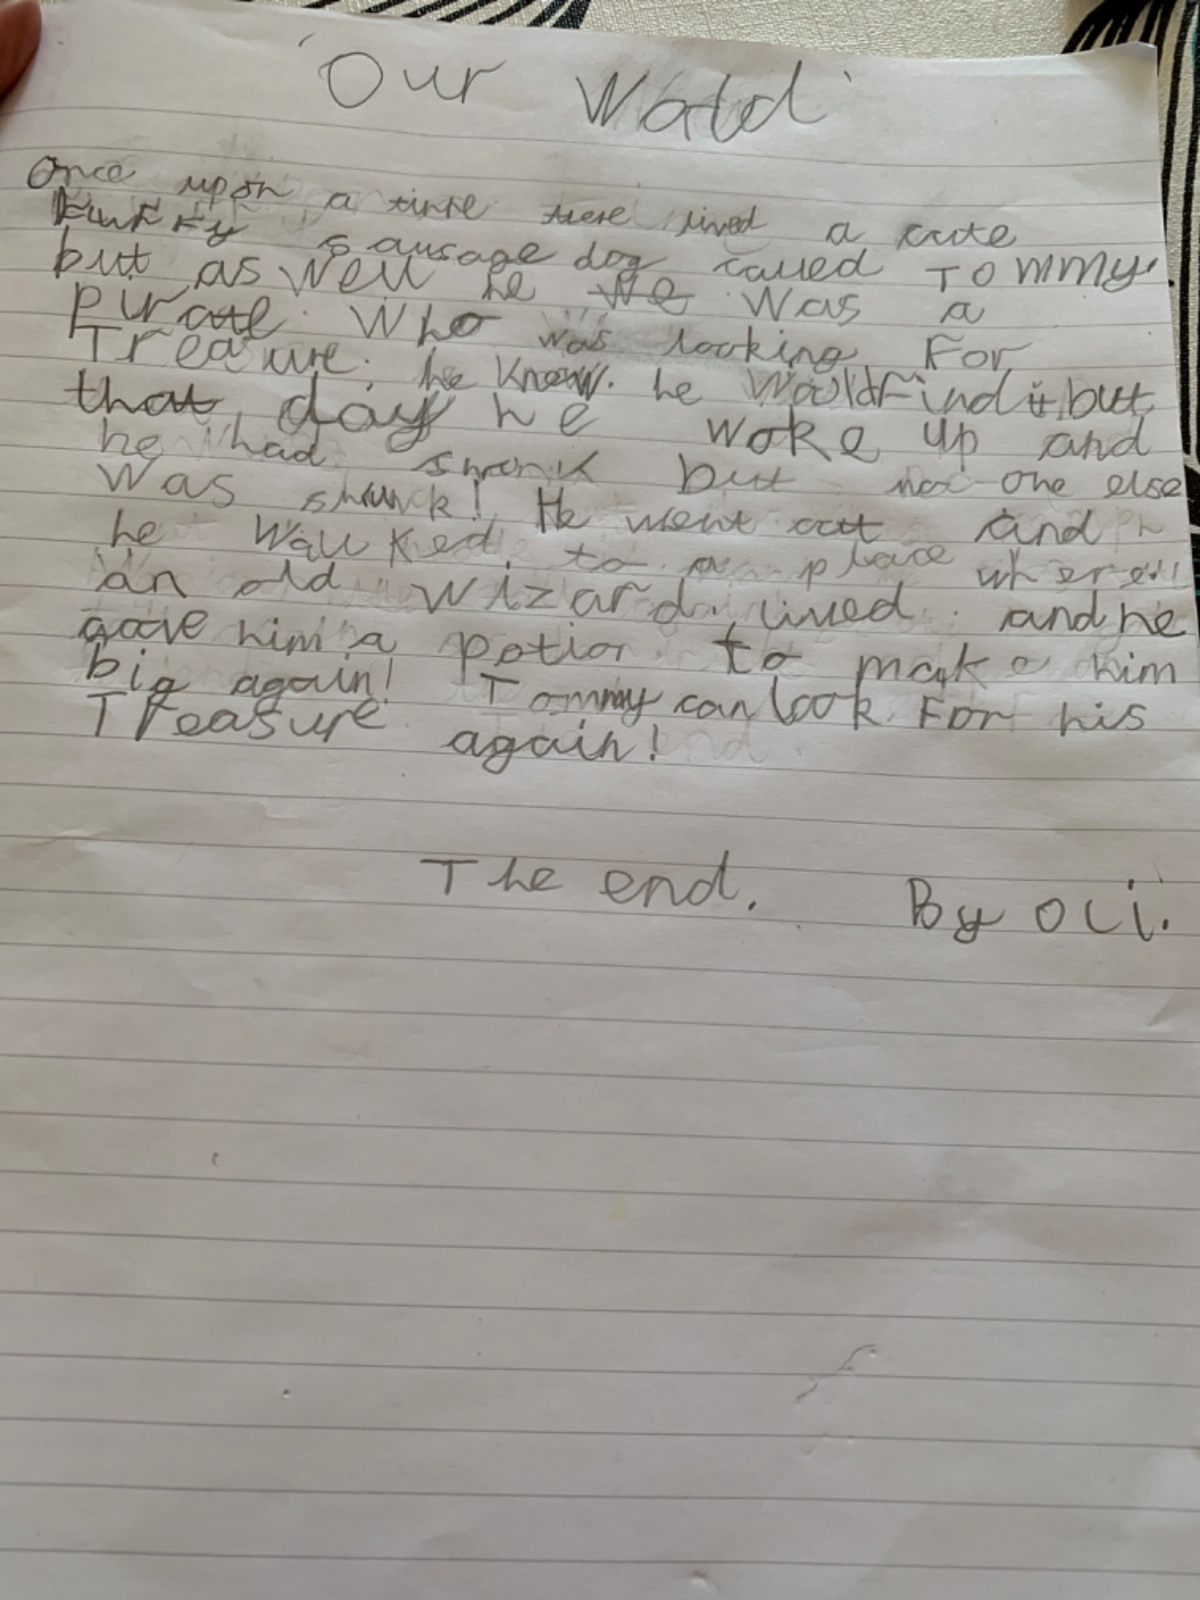 'Our Wald'
Once upon a time there lived a cute
Furry sausage dog called TOmmy.
but as well he we was a
Pirate. Who was looking For
Treasure. he know. he WouldFind it but
that day he woke up and
he had shrunk but no one else
was shrunk! He went out and
he wallked to a place where
an old wizard lived. and he
gave him a potion to make him
big again! Tommy can look For his
Treasure again!
The end. By oli.